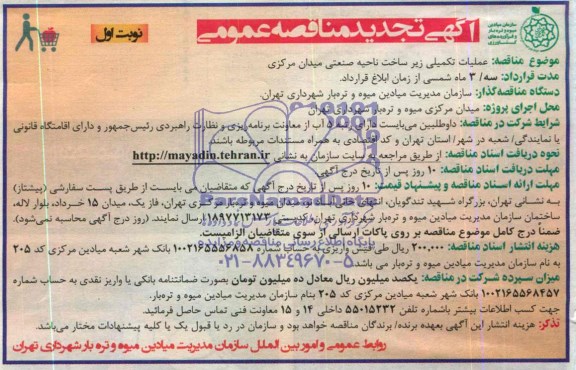 سازمان میادین
میوه و تره بار
و فرآورده های
کشاورزی
آگهی تجدید مناقصه عمومی
نوبت اول
موضوع مناقصه: عملیات تکمیلی زیر ساخت ناحیه صنعتی میدان مرکزی
مدت قرارداد: سه/ ۳ ماه شمسی از زمان ابلاغ قرارداد.
دستگاه مناقصه‌گذار: سازمان مدیریت میادین میوه و تره‌بار شهرداری تهران.
محل اجرای پروژه: میدان مرکزی میوه و تره‌بار شهرداری تهران
شرایط شرکت در مناقصه: داوطلبین می‌بایست دارای رتبه ۵ آب از معاونت برنامه‌ریزی و نظارت راهبردی رئیس‌جمهور و دارای اقامتگاه قانونی
یا نمایندگی/ شعبه در شهر/ استان تهران و کد اقتصادی به همراه مستندات مربوطه باشند
نحوه دریافت اسناد مناقصه: از طریق مراجعه به سایت سازمان به نشانی http://mayadin.tehran.ir
مهلت دریافت اسناد مناقصه: ۱۰ روز پس از تاریخ درج آگهی
مهلت ارائه اسناد مناقصه و پیشنهاد قیمت: ۱۰ روز پس از تاریخ درج آگهی که متقاضیان می بایست از طریق پست سفارشی (پیشتاز)
به نشانی تهران، بزرگراه شهید تندگویان، انتهای میدان مرکزی تهران، فاز یک، میدان ۱۵ خرداد، بلوار لاله،
ساختمان سازمان مدیریت میادین میوه و تره‌بار شهرداری تهران، کدپستی ۱۱۸۹۷۷۱۳۱۷۳ ارسال نمایند. (روز درج آگهی محاسبه نمی‌شود).
ضمنا درج کامل موضوع مناقصه بر روی پاکات ارسالی از سوی متقاضیان الزامیست.
پایگاه اطلاع رسانی مناقصه و مزایده
هزینه انتشار اسناد مناقصه: ۲۰۰.۰۰۰ ریال طی فیش واریزی به حساب شماره ۱۰۰۲۱۶۵۵۵۶۸۵۸ بانک شهر شعبه میادین مرکزی کد ۲۰۵
به نام سازمان مدیریت میادین میوه و تره‌بار می باشد.
۰۲۱-۸۸۳۴۹۶۷۰-۵
میزان سپرده شرکت در مناقصه: یکصد میلیون ریال معادل ده میلیون تومان بصورت ضمانتنامه بانکی یا واریز نقدی به حساب شماره
۱۰۰۲۱۶۵۵۶۸۴۵۷ بانک شهر شعبه میادین مرکزی کد ۲۰۵ بنام سازمان مدیریت میادین میوه و تره‌بار.
جهت کسب اطلاعات بیشتر باشماره تلفن ۵۵۰۱۵۲۳۲ داخلی ۱۴ و ۱۵ معاونت فنی تماس حاصل فرمائید.
تذکر: هزینه انتشار این آگهی بعهده برنده/ برندگان مناقصه خواهد بود و سازمان در رد یا قبول یک یا کلیه پیشنهادات مختار می‌باشد.
روابط عمومی و امور بین الملل سازمان مدیریت میادین میوه و تره بار شهرداری تهران